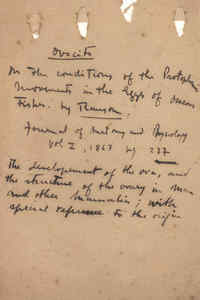 Ovocito
On the conditions of the Protoplasmic
movements in the Eggs of Osseous
Fishes. by Ransom.
Journal of Anatomy and Physiology
vol I, 1867 pg 237
The development of the ova, and
the structure of the ovary in man
and other mammalia; with
special reference to the origin